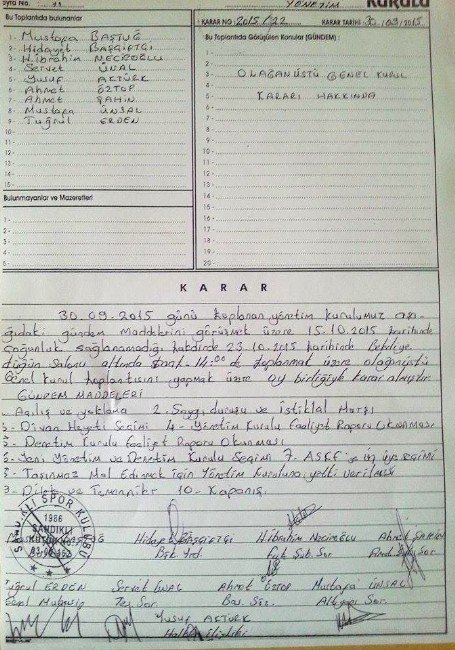 Sayfa No. : 41
YÖNETİM KURULU
Bu Toplantıda bulunanlar
1 - Mustafa BAŞTUĞ
2 - Hidayet BAŞÇİFTÇİ
3 - H.İbrahim NECİPOĞLU
4 - Servet ÜNAL
5 - Yusuf AKTÜRK
6 - Ahmet ÖZTOP
7 - Ahmet ŞAHİN
8 - Mustafa ÜNSAL
9 - Tuğrul ERDEN
10 -
11 -
12 -
13 -
14 -
15 -
Bulunmayanlar ve Mazeretleri
1 -
2 -
3 -
4 -
5 -
6 -
KARAR NO : 2015/22 KARAR TARİHİ : 30/09/2015
Bu Toplantıda Görüşülen Konular (GÜNDEM)
OLAĞANÜSTÜ GENEL KURUL
KARARI HAKKINDA
KARAR
30.09.2015 günü toplanan yönetim kurulumuz aşa-
ğıdaki gündem Maddelerini görüşmek üzere 15.10.2015 tarihinde
çoğunluk sağlanamadığı takdirde 23.10.2015 tarihinde Belediye
düğün Salonu altında Saat: 14:00 de toplanmak üzere olağanüstü
Genel kurul toplantısını yapmak üzere oy birliğiyle karar almıştır.
GÜNDEM MADDELERİ
Açılış ve yoklama 2. Saygı duruşu ve İstiklal Marşı
3- Divan Heyeti Seçimi 4- Yönetim Kurulu Faaliyet Raporu Okunması
5- Denetim Kurulu Faaliyet Raporu Okunması
6- Yeni Yönetim ve Denetim Kurulu Seçimi 7. ASKF'ye üye seçimi
8- Taşınmaz Mal Edinmek için Yönetim Kuruluna yetki verilmesi
9- Dilek ve Temenniler 10- Kapanış.
SANDIKLI SPOR KULÜBÜ
1986
SANDIKLI
Hidayet BAŞÇİFTÇİ H.İbrahim NECİPOĞLU Ahmet ŞAHİN
Bşk Yrd.
Tuğrul ERDEN Servet ÜNAL Ahmet ÖZTOP Mustafa ÜNSAL
Genel Muhasip Tes Sor. Bas. Söz. Altyapı Sor.
Yusuf AKTÜRK
Halkla ilişkiler